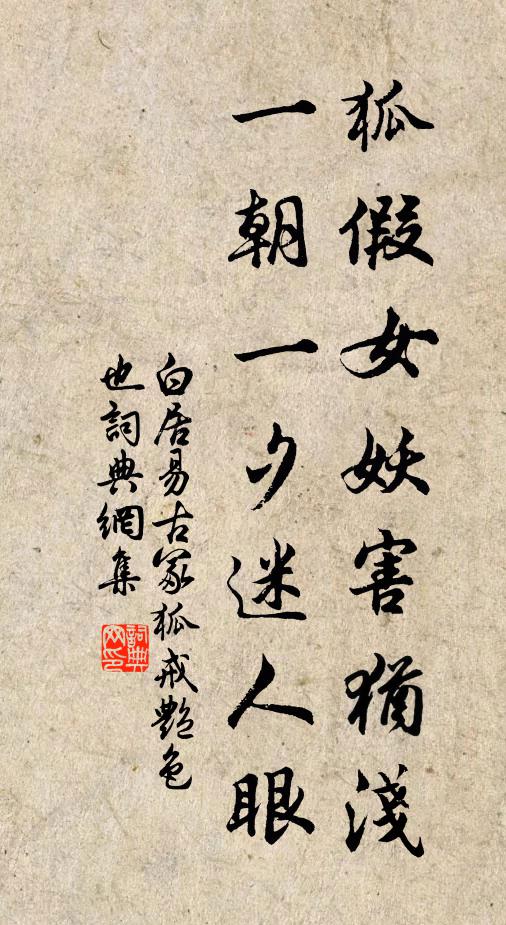 狐假女妖害猶淺
一朝一夕迷人眼
白居易古冢狐戒艷色
也詞典網集
詞典网印